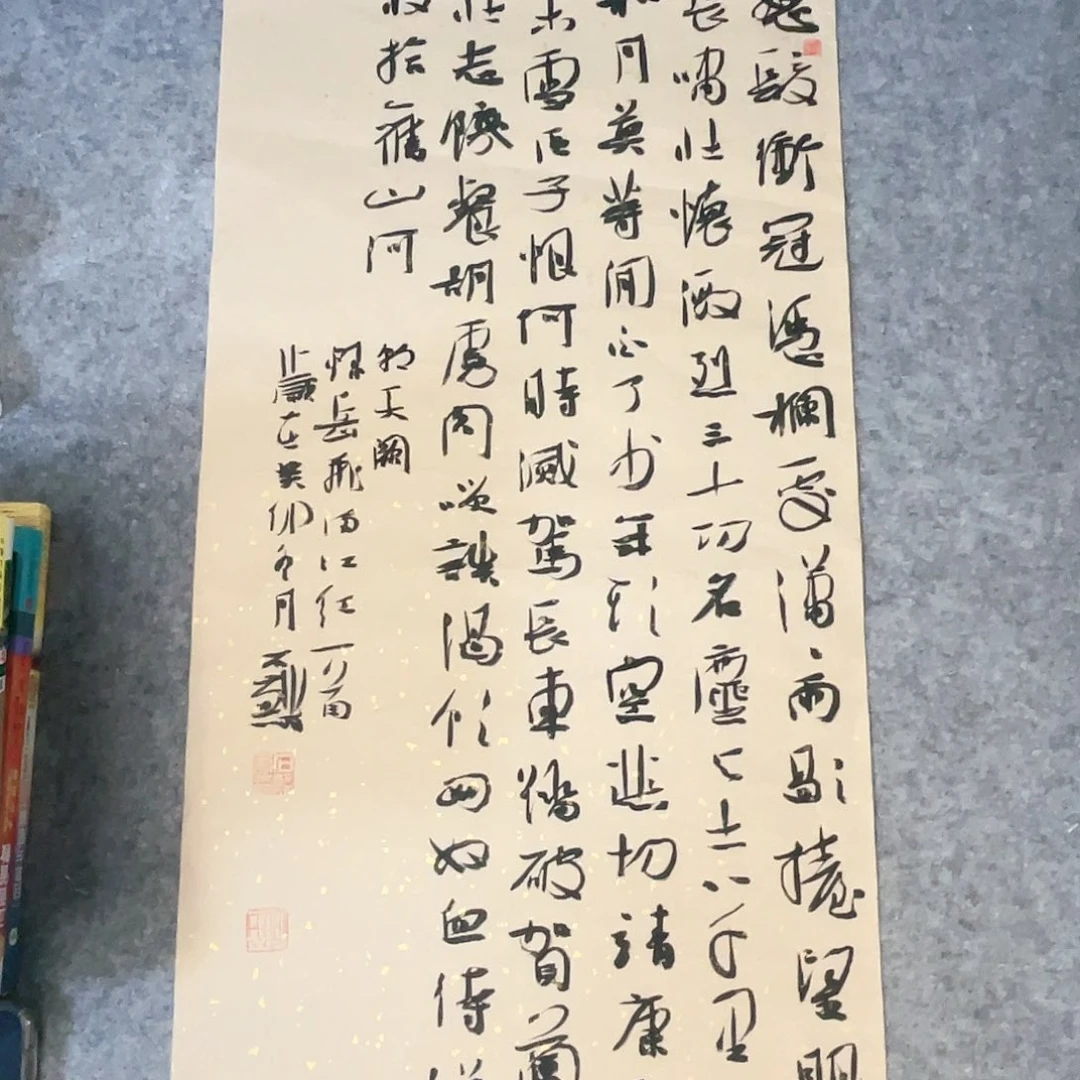 怒髮衝冠憑欄處瀟々雨歇擡望眼
長嘯壯懷激烈三十功名塵与土八千里
和月莫等閒白了少年頭空悲切靖康
未雪臣子恨何時滅駕長車踏破賀蘭
壯志饑餐胡虜肉笑談渴飲匈奴血待從
收拾舊山河
朝天闕
岳飛滿江紅一首
歲在癸卯冬月